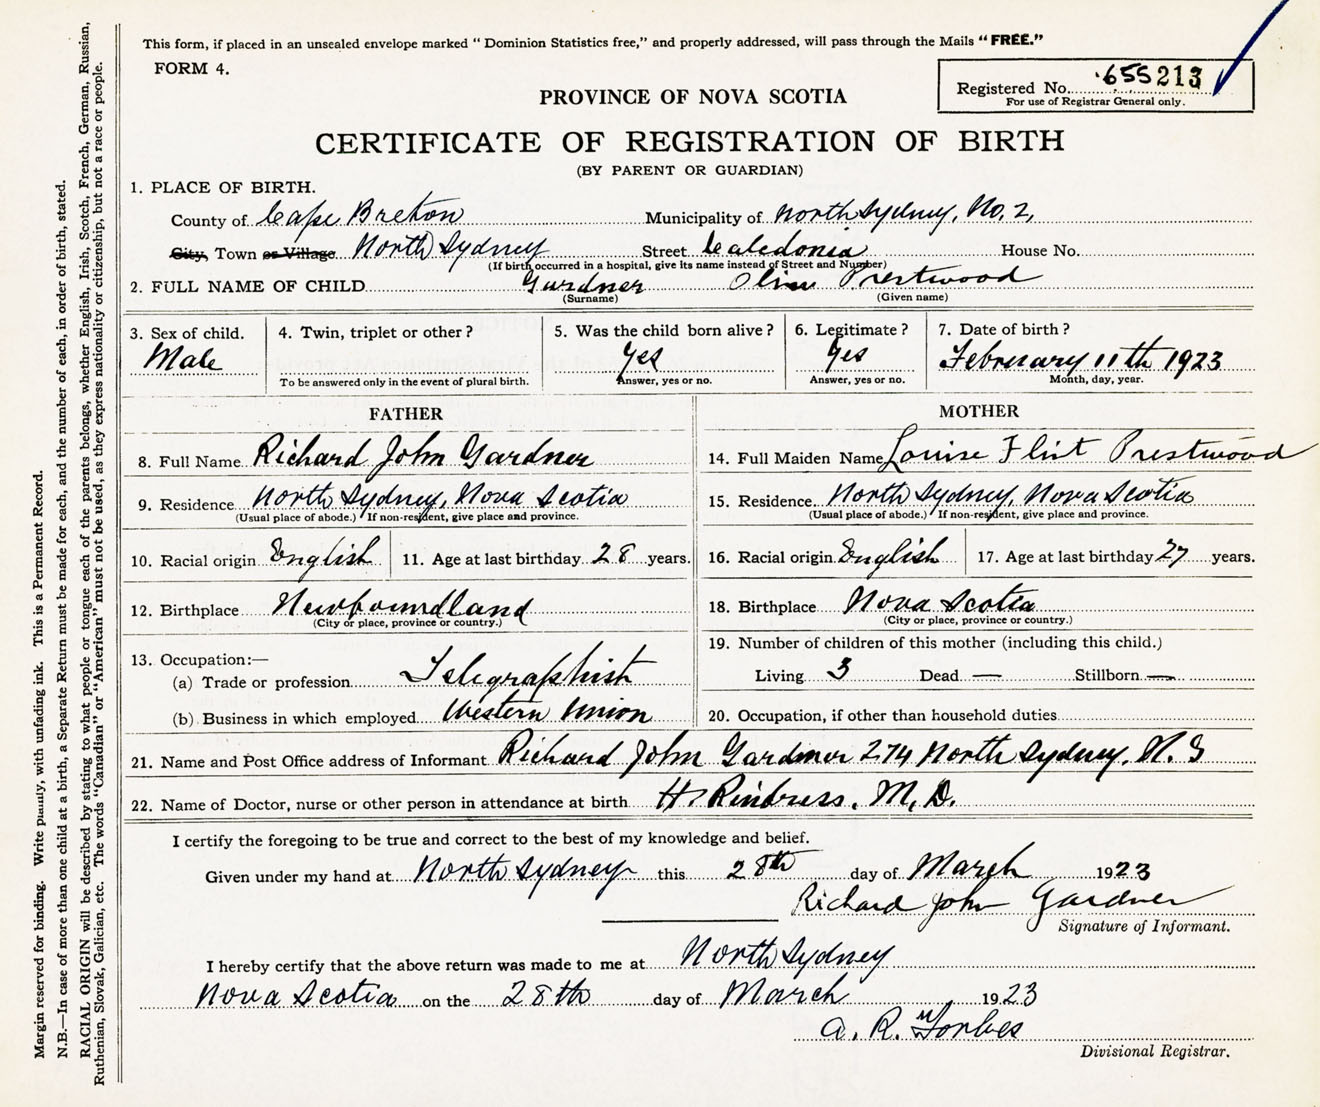 This form, if placed in an unsealed envelope marked “ Dominion Statistics free,” and properly addressed, will pass through the Mails “ FREE.”
FORM 4.
Registered No. 655213
For use of Registrar General only.
PROVINCE OF NOVA SCOTIA
CERTIFICATE OF REGISTRATION OF BIRTH
(BY PARENT OR GUARDIAN)
1. PLACE OF BIRTH.
County of Cape Breton Municipality of North Sydney, No. 2,
City, Town or Village North Sydney Street Caledonia House No.
(If birth occurred in a hospital, give its name instead of Street and Number)
2. FULL NAME OF CHILD Gardner Prestwood
(Surname) (Given name)
3. Sex of child. 4. Twin, triplet or other ? 5. Was the child born alive ? 6. Legitimate ? 7. Date of birth ?
Male Yes Yes February 11th 1923
To be answered only in the event of plural birth. Answer, yes or no. Answer, yes or no. Month, day, year.
FATHER MOTHER
8. Full Name Richard John Gardner 14. Full Maiden Name Louise Flint Prestwood
9. Residence North Sydney, Nova Scotia 15. Residence North Sydney, Nova Scotia
(Usual place of abode.) If non-resident, give place and province. (Usual place of abode.) If non-resident, give place and province.
10. Racial origin English 11. Age at last birthday 28 years. 16. Racial origin English 17. Age at last birthday 27 years.
12. Birthplace Newfoundland 18. Birthplace Nova Scotia
(City or place, province or country.) (City or place, province or country.)
19. Number of children of this mother (including this child.)
13. Occupation:—
(a) Trade or profession Telegraphist Living 3 Dead — Stillborn —
(b) Business in which employed Western Union 20. Occupation, if other than household duties
21. Name and Post Office address of Informant Richard John Gardner 274 North Sydney, N. S
22. Name of Doctor, nurse or other person in attendance at birth H. Rindress, M. D.
I certify the foregoing to be true and correct to the best of my knowledge and belief.
Given under my hand at North Sydney this 28th day of March 1923
Richard John Gardner
Signature of Informant.
I hereby certify that the above return was made to me at North Sydney
Nova Scotia on the 28th day of March 1923
A. R. Forbes
Divisional Registrar.
Margin reserved for binding. Write plainly, with unfading ink. This is a Permanent Record.
N.B.—In case of more than one child at a birth, a Separate Return must be made for each, and the number of each, in order of birth, stated.
RACIAL ORIGIN will be described by stating to what people or tongue each of the parents belongs, whether English, Irish, Scotch, French, German, Russian,
Ruthenian, Slovak, Galician, etc. The words “Canadian” or “American” must not be used, as they express nationality or citizenship, but not a race or people.